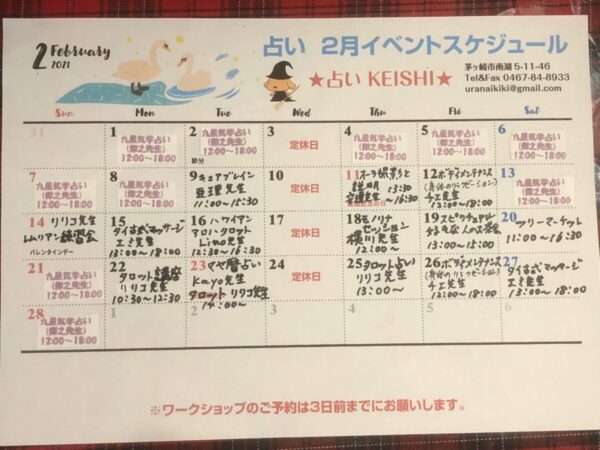 2 February
2021
占い 2月イベントスケジュール
★占い KEISHI★
茅ヶ崎市南湖5-11-46
Tel&Fax 0467-84-8933
uranaikiki@gmail.com
Sun Mon Tue Wed Thu Fri Sat
31
1
九星気学占い
12:00〜18:00
2
九星気学占い
12:00〜18:00
節分
3
定休日
4
九星気学占い
12:00〜18:00
5
九星気学占い
12:00〜18:00
6
九星気学占い
12:00〜18:00
7
九星気学占い
12:00〜18:00
8
九星気学占い
12:00〜18:00
9 キュアブレイン
亜理先生
11:00〜15:30
10
定休日
11
説明
13:30
〜16:30
12 ボディメンテナンス
チエ先生
13:00〜18:00
13
九星気学占い
12:00〜18:00
14 リリコ先生
ルノルマン練習会
バレンタインデー
15
タイ古式マッサージ
エミ先生
13:00〜18:00
16 ハワイアン
アロハタロット
Lino先生
12:30〜16:30
17
定休日
18 モノリナ
セッション
横川先生
12:00〜
19 スピリチュアル
好きな人のお茶会
13:00〜15:00
20
フリーマーケット
11:00〜16:30
21
九星気学占い
12:00〜18:00
22
タロット講座
リリコ先生
10:30〜12:30
23 マヤ暦占い
Kayo先生
タロット リリコ先生
14:00〜
24
定休日
25 タロット占い
リリコ先生
13:00〜
26 ボディメンテナンス
チエ先生
13:00〜18:00
27
タイ古式マッサージ
エミ先生
13:00〜18:00
28
九星気学占い
12:00〜18:00
1 2 3 4 5 6
※ワークショップのご予約は3日前までにお願いします。